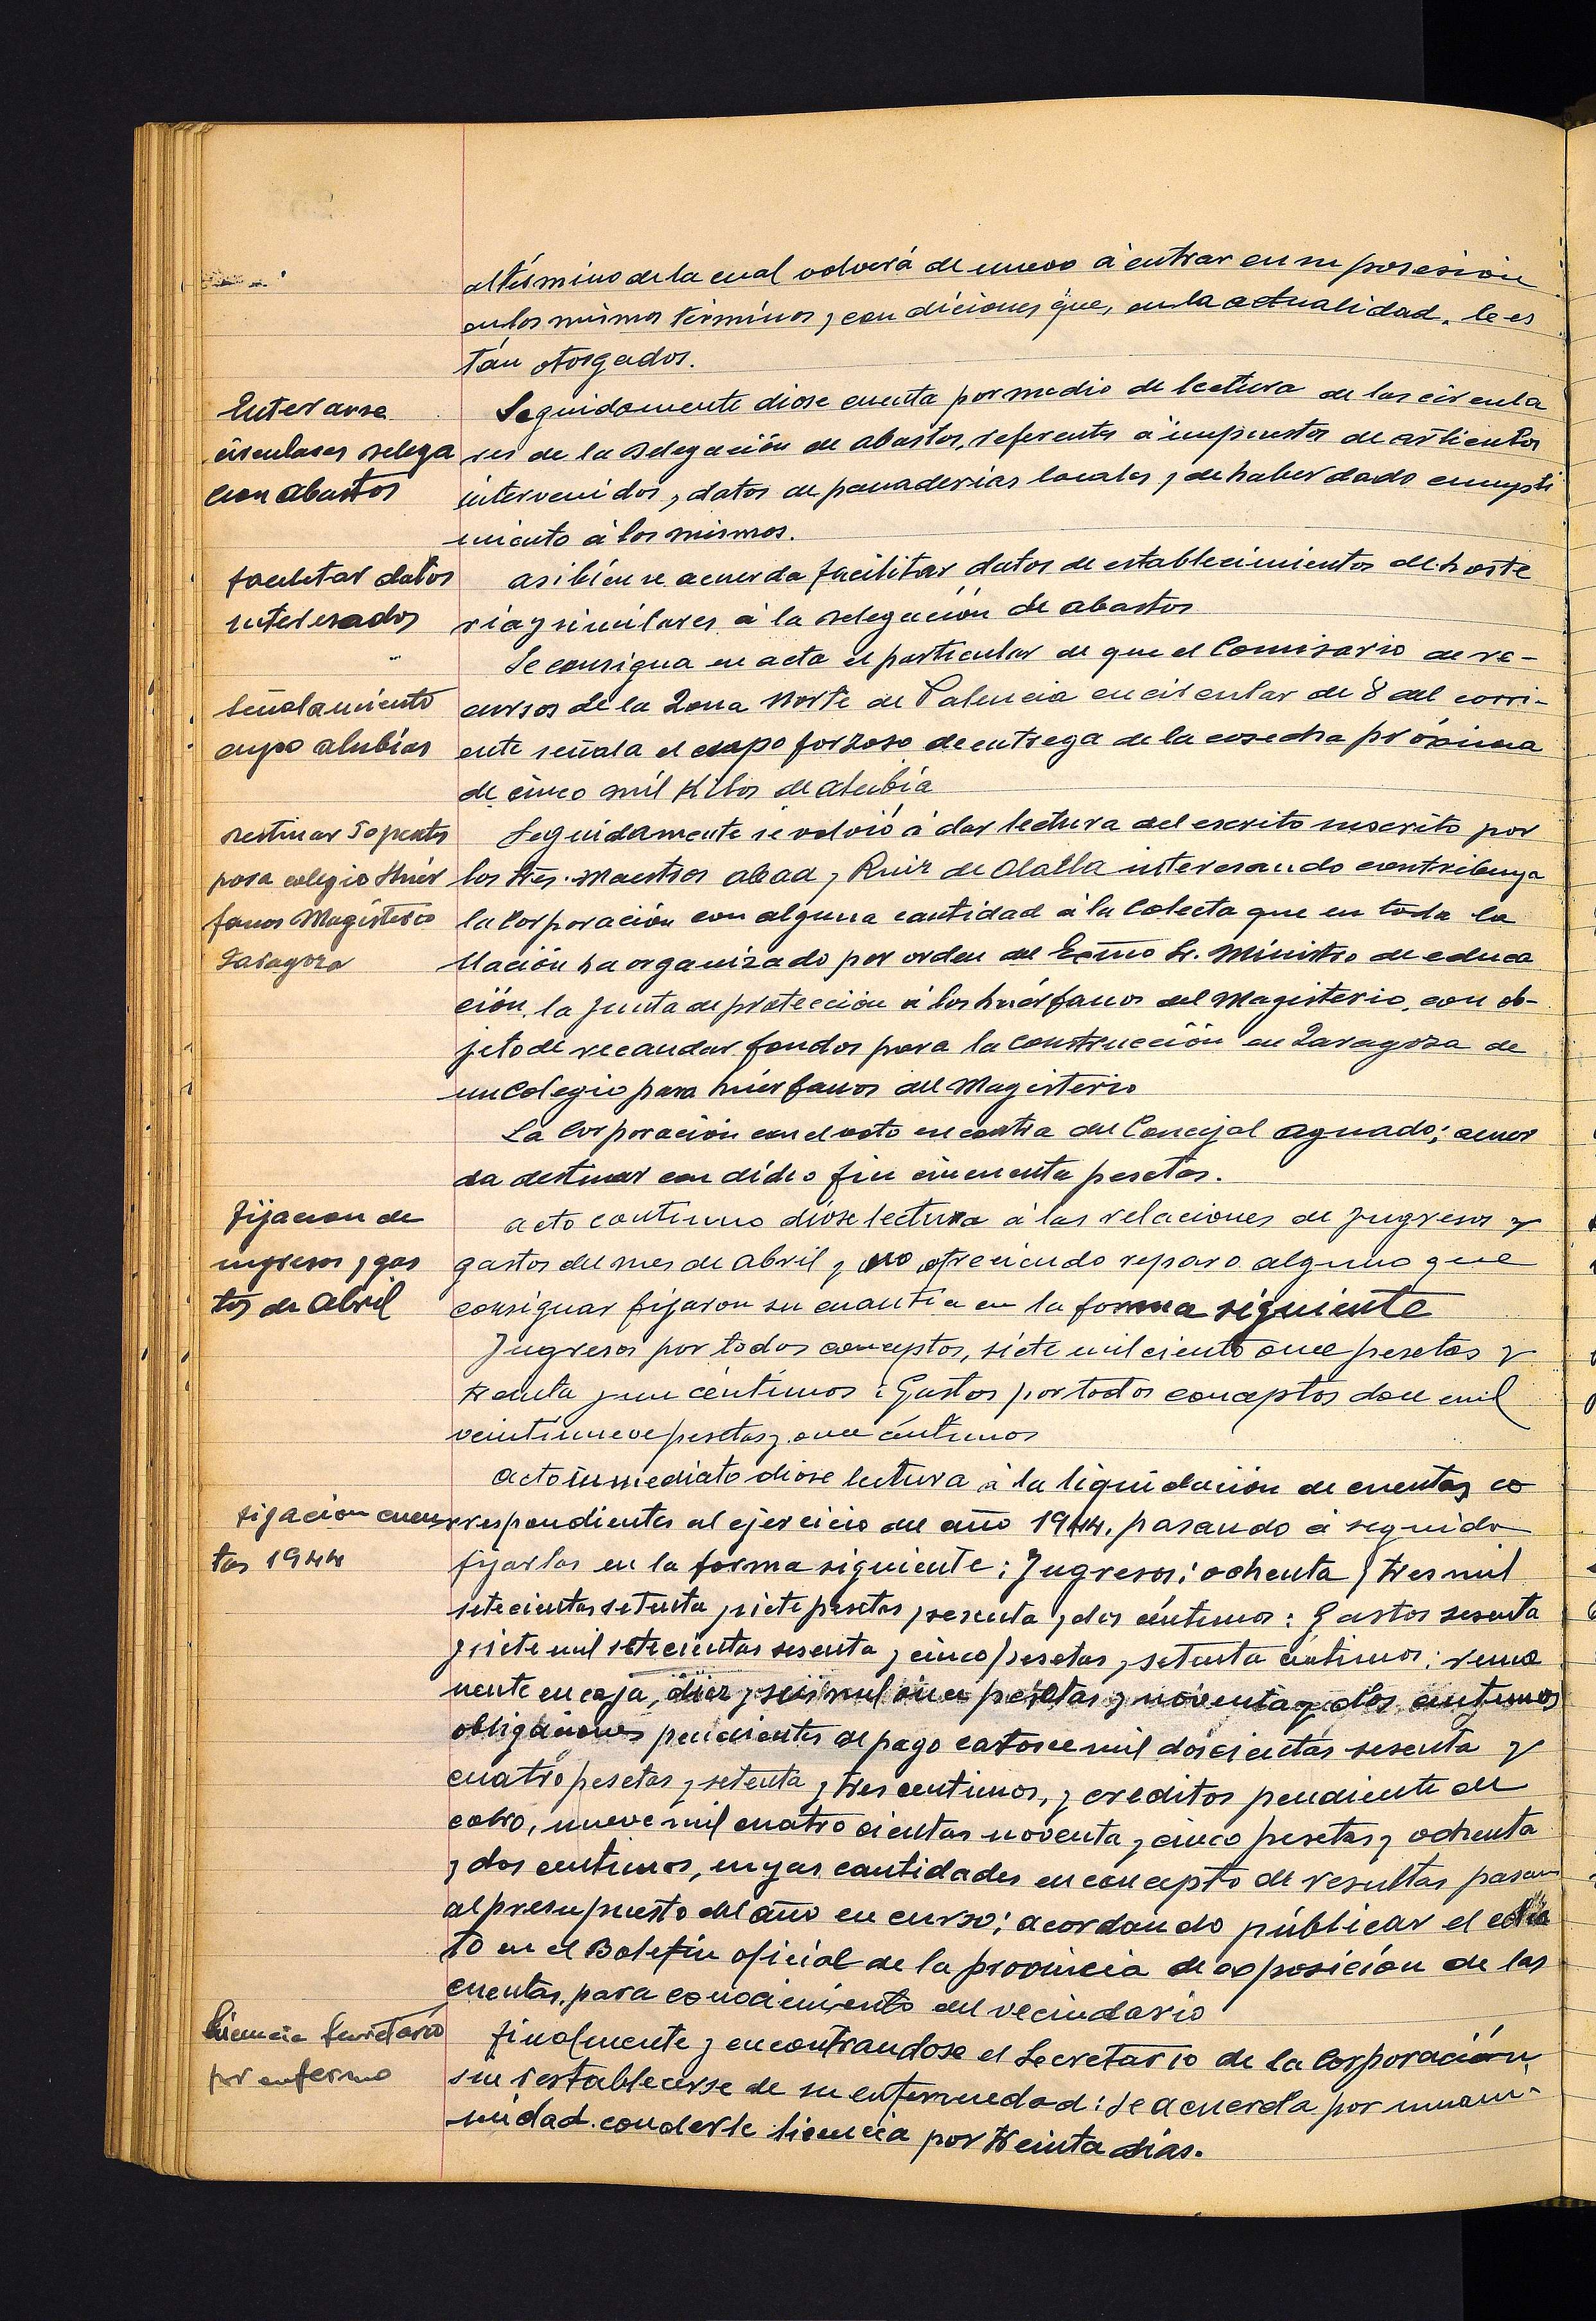 al término de la cual volverá de nuevo á entrar en su posesión
en los mismos términos y condiciones que, en la actualidad, le es
tán otorgados.
Enterarse
circulares Delega
cion Abastos
Seguidamente diose cuenta por medio de lectura de las circula
res de la Delegación de Abastos, referentes á impuestos de artículos
intervenidos, y datos de panaderías locales y de haber dado cumpli
miento á los mismos.
facilitar datos
interesados
asi bien se acuerda facilitar datos de establecimientos de hoste
ria y similares á la Delegación de Abastos
Señalamiento
cupo alubias
Se consigna en acta el particular de que el Comisario de re-
cursos de la Zona Norte de Palencia en circular de 8 del corri-
ente señala el cupo forzoso de entrega de la cosecha próxima
de cinco mil Kilos de alubia
Destinar 50 pesetas
para colegio Huér
fanos Magisterio
Zaragoza
Seguidamente se volvió á dar lectura del escrito suscrito por
los Sres. Maestros Abad y Ruiz de Olalla interesando contribuya
la Corporación con alguna cantidad á la Colecta que en toda la
Nación ha organizado por orden del Excmo Sr. Ministro de educa
ción, la Junta de protección á los huérfanos del Magisterio, con ob-
jeto de recaudar fondos para la construcción en Zaragoza de
un Colegio para huérfanos del Magisterio
La Corporación con el voto en contra del Concejal Aguado; acuer
da destinar con dicho fin cincuenta pesetas.
fijacion de
ingresos y gas
tos de Abril
acto continuo diose lectura á las relaciones de Ingresos y
gastos del mes de Abril y no ofreciendo reparo alguno que
consignar fijaron su cuantía en la forma siguiente
Ingresos por todos conceptos, siete mil ciento once pesetas y
treinta y un céntimos: Gastos por todos conceptos doce mil
veintinueve pesetas y once céntimos
fijacion cuen
tas 1944
Acto inmediato diose lectura á la liquidación de cuentas co
rrespondientes al ejercicio del año 1944, pasando á seguido
fijarlas en la forma siguiente: Ingresos; ochenta y tres mil
setecientas setenta y siete pesetas y sesenta y dos céntimos: Gastos sesenta
y siete mil setecientas sesenta y cinco pesetas y setenta céntimos; rema
nente en caja, diez y seis mil once pesetas y noventa y dos centimos
obligaciones pendientes de pago catorce mil doscientas sesenta y
cuatro pesetas y setenta y tres centimos, y creditos pendiente de
cobro, nueve mil cuatrocientas noventa y cinco pesetas y ochenta
y dos centimos, cuyas cantidades en concepto de resultas pasan
al presupuesto del año en curso; acordando públicar el edic
to en el Boletín oficial de la provincia de exposición de las
cuentas, para conocimiento del vecindario
Licencia Secretario
por enfermo
finalmente y encontrandose el Secretario de la Corporación
sin restablecerse de su enfermedad: Se acuerda por unani-
midad conderle licencia por treinta días.